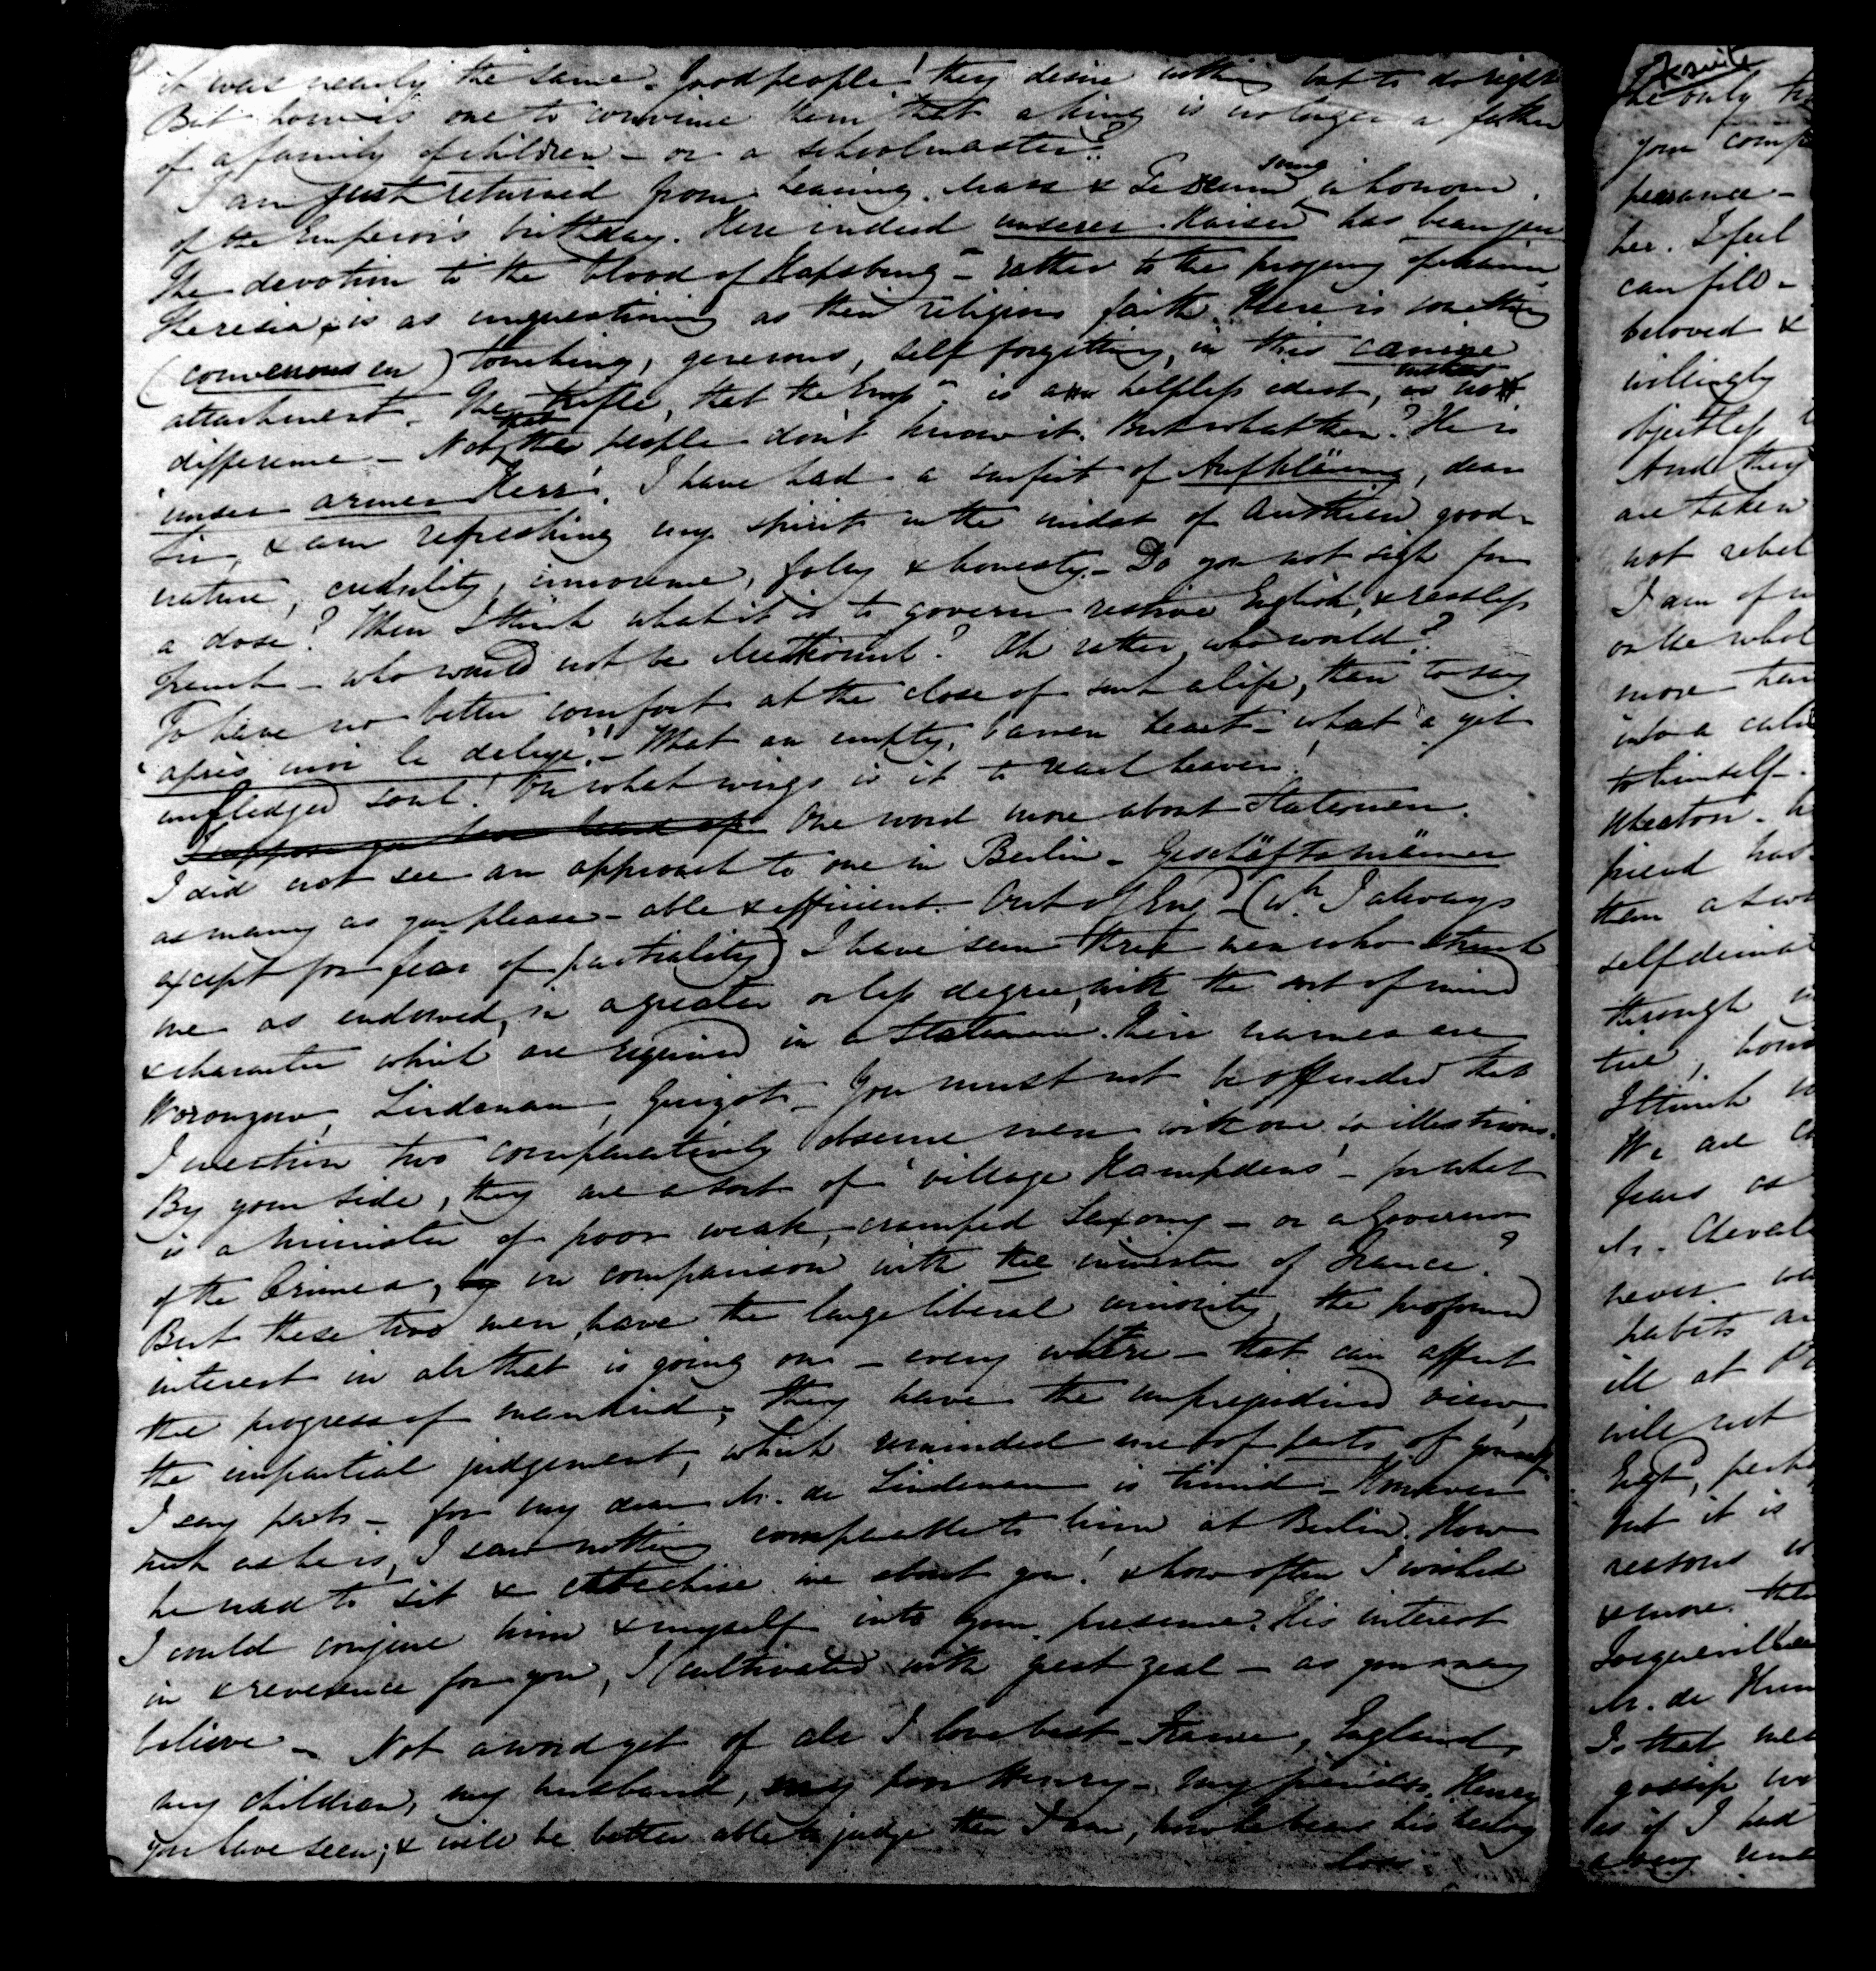 it was nearly the same. Good people! they desire nothing but to do right
But how is one to convince them that a king is no longer a father
of a family of children – or a schoolmaster?
I am just returned from hearing Mass & Te Deum sung in honour
of the Emperor's birthday. Here indeed unserer Kaiser has beau jeu
The devotion to the blood of Hapsburg – rather to the progeny of Maria
Theresia, is as unquestioning as their religious faith. There is something
(convenons en) touching, generous, self forgetting, in this canine
attachment. The trifle, that the Emp.r is a helpless idiot, makes no
difference – Not that the people don't know it. But what then? He is
'unser armer Herr'. I have had a surfeit of Aufklärung, dear
Sir, & am refreshing my spirit in the midst of Austrian good-
nature, credulity, innocence, folly & honesty. – Do you not sigh for
a dose? When I think what it is to govern restive English, & restless
French – who would not be Metternich? Oh rather, who would?
To have no better comfort at the close of such a life, than to say
'après moi le deluge'! – What an empty, barren heart – what a yet
unfledged soul! On what wings is it to reach heaven!
I suppose you have heard of One word more about Statesmen.
I did not see an approach to one in Berlin – Geschäftsmänner
as many as you please – able & efficient. Out of Eng.d (wh I always
except for fear of partiality) I have seen three men who struck
me as endowed, in a greater or less degree, with the sort of mind
& character which are required in a Statesman. Their names are
Woronzow, Lindenau, Guizot – You must not be offended that
I mention two comparatively obscure men with one so illustrious.
By your side, they are a sort of 'village Hampdens' – for what
is a minister of poor weak, cramped Saxony – or a Governor
of the Crimea, in comparison with the minister of France?
But these two men have the large liberal curiosity, the profound
interest in all that is going on – every where – that can affect
the progress of mankind; they have the unprejudiced view,
the impartial judgement, which reminded me of parts of yourself.
I say parts – for my dear M. de Lindenau is timid – However
such as he is, I saw nothing comparable to him at Berlin. How
he used to sit & catechise me about you! & how often I wished
I could conjure him & myself into your presence. His interest
in & reverence for you, I cultivated with great zeal – as you may
believe – Not a word yet of all I love best – France, England,
my children, my husband, my poor Henry – my friends. Henry
you have seen; & will be better able to judge than I am, how he bears his heavy
loss
Jesuite
the only
your comp
pearance –
her. I feel
can fill –
beloved &
willingly
objectless
And they
are taken
not rebel
I am of
on the whol
more than
into a
to himself –
Wheaton.
friend has
them a
self denial
through
true,
I think
We are
fears as
M. Cheval
never
habits
ill at
will not
Engd, perh
but it is
reasons
& more
Tocqueville
M. de Hum
Is that
gossip
as if I had
a very